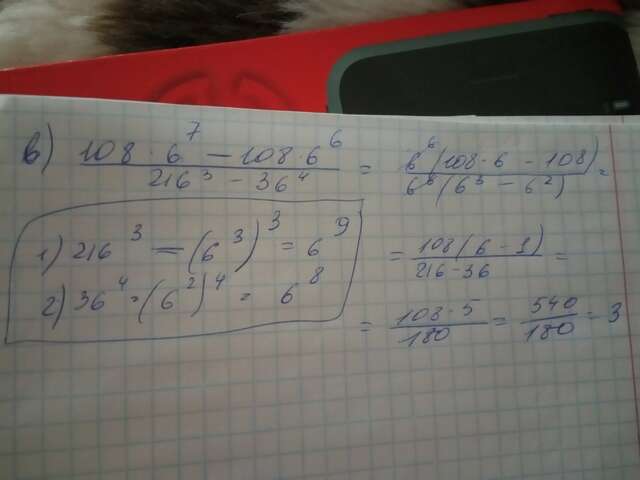 в) (108·6⁷ − 108·6⁶)/(216³ − 36⁴) = 6⁶(108·6 − 108)/6⁶(6³ − 6²) =
1) 216³ = (6³)³ = 6⁹
2) 36⁴ = (6²)⁴ = 6⁸
= 108(6 − 1)/(216 − 36) =
= 108·5/180 = 540/180 = 3